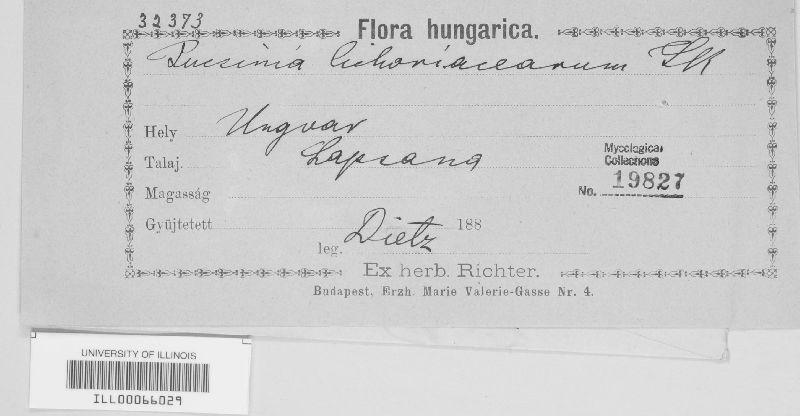 32373
Flora hungarica.
Pucsinia Cichoriacearum
Hely Ungvar
Talaj. Lapsana
Mycological
Collections
No. 19827
Magasság
Gyüjtetett 188
leg. Dietz
Ex herb. Richter.
Budapest, Erzh. Marie Valerie-Gasse Nr. 4.
UNIVERSITY OF ILLINOIS
ILL00066029